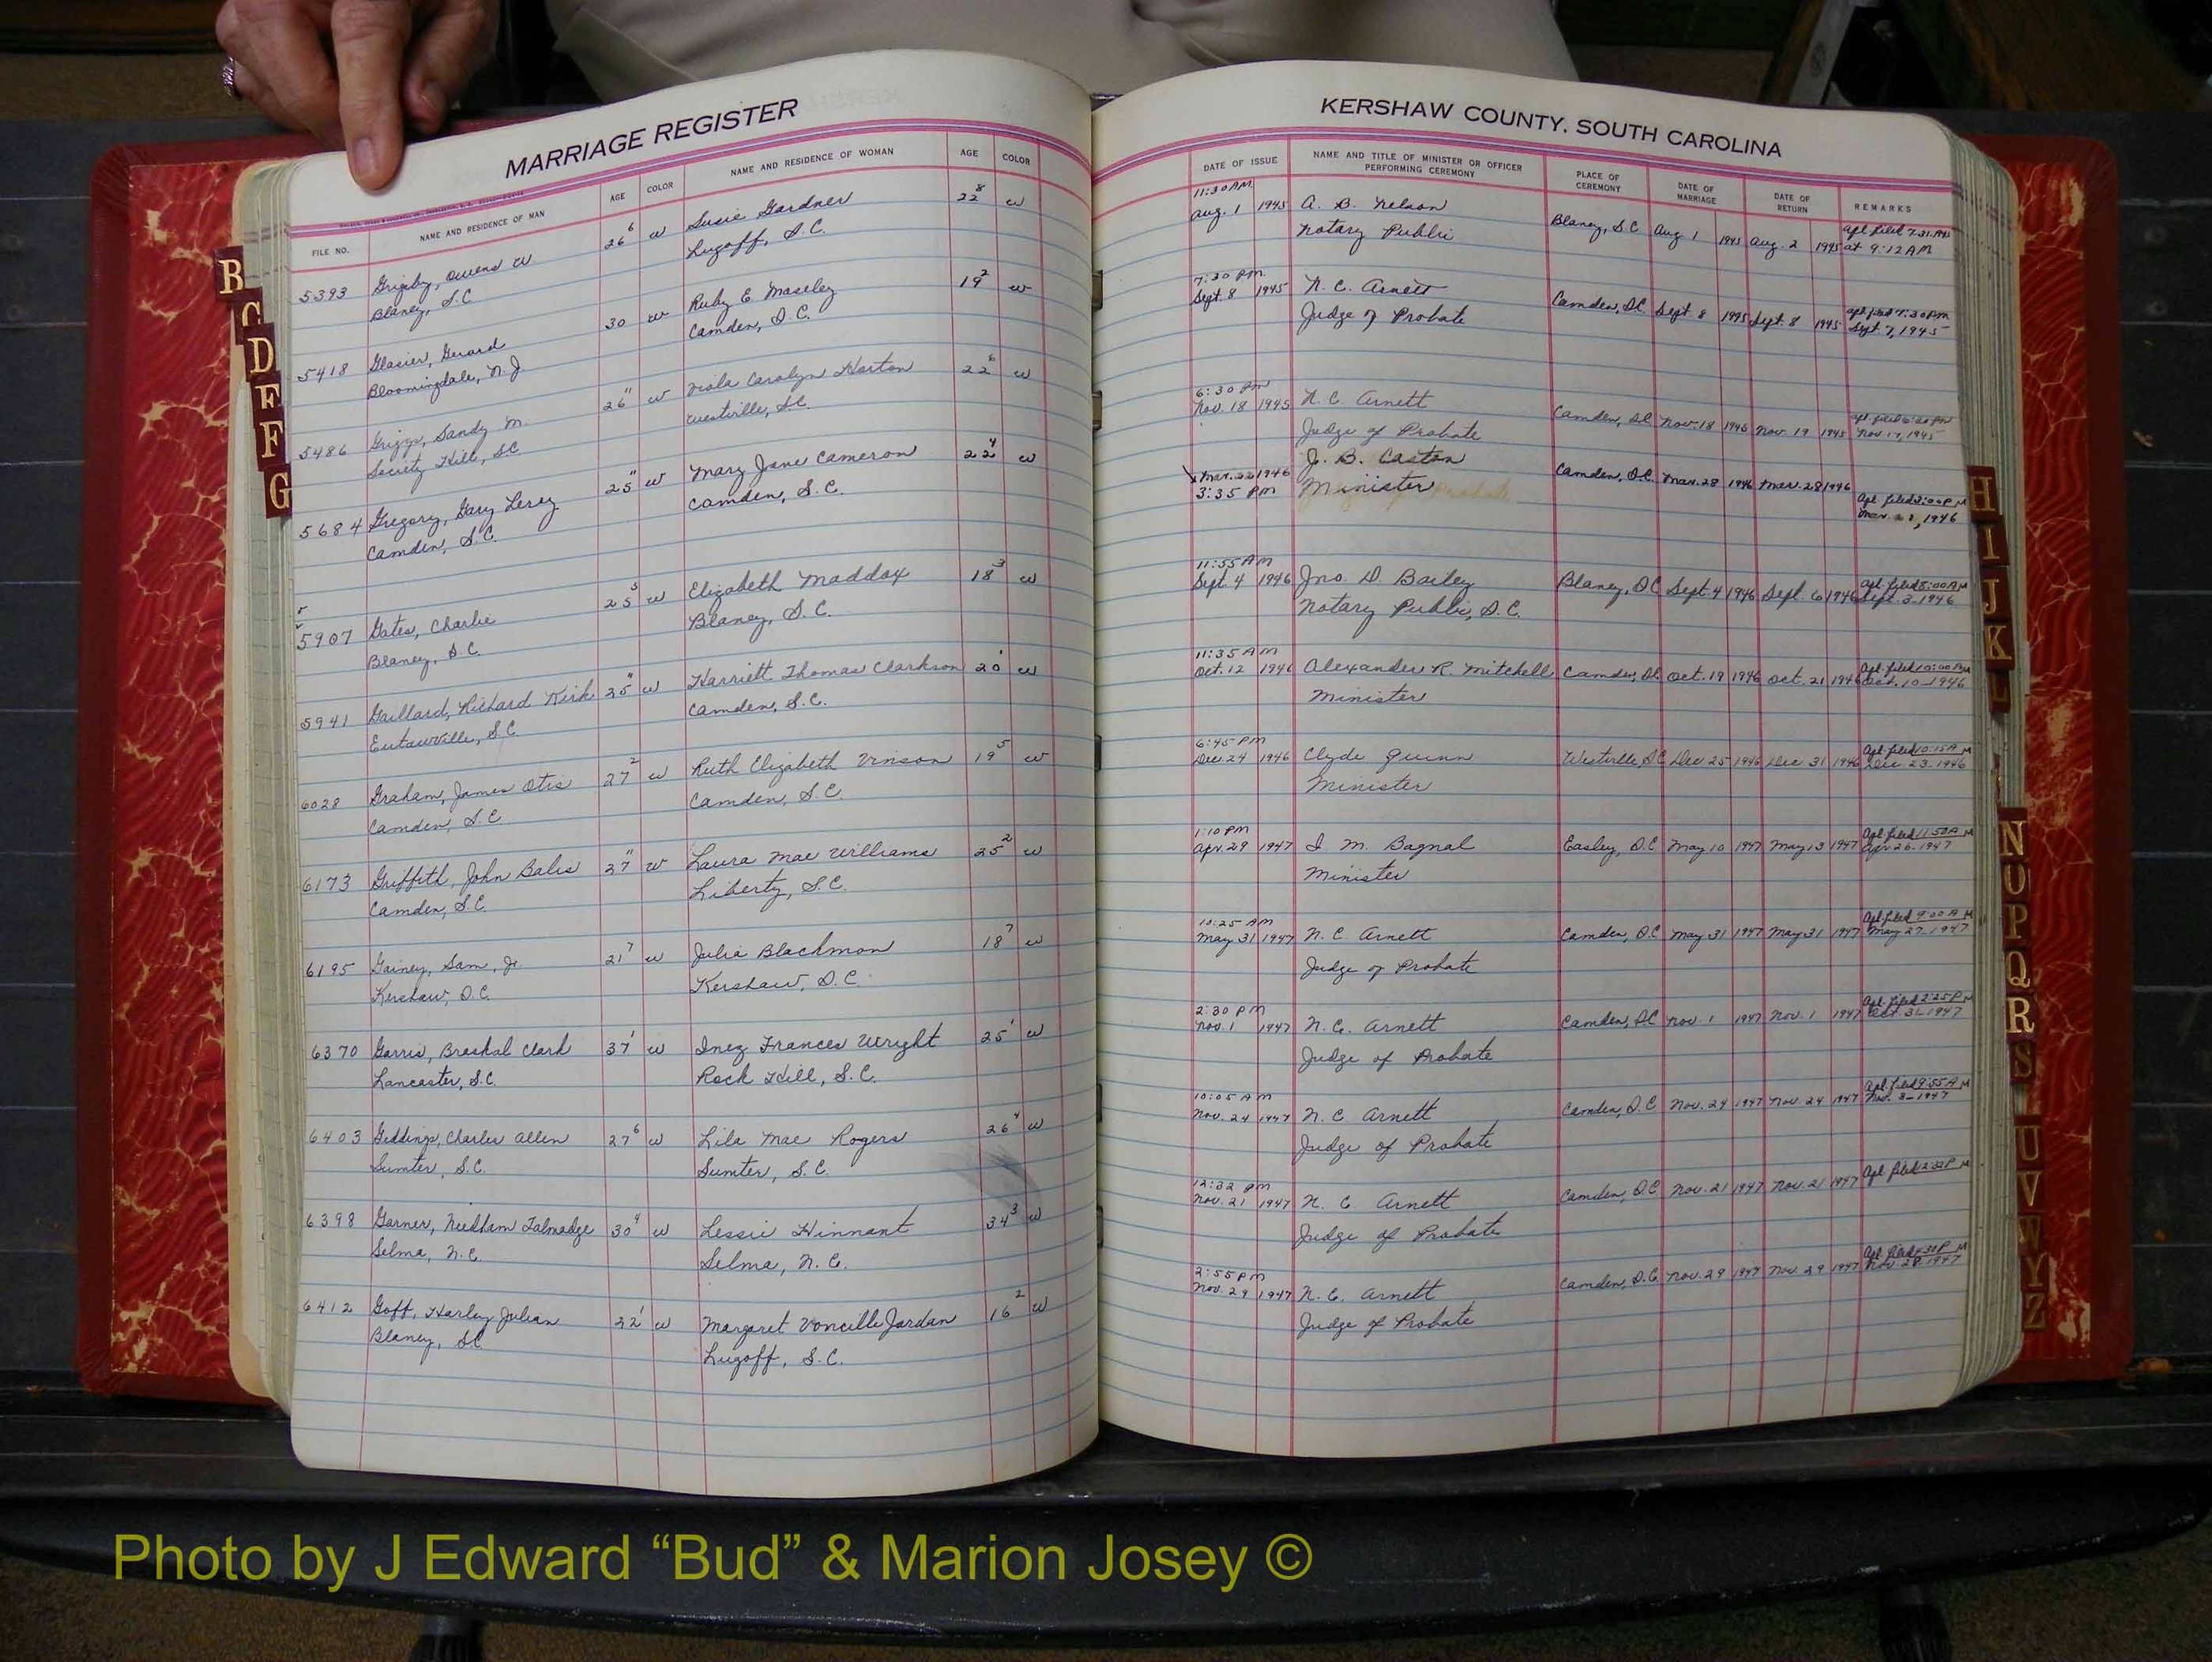 MARRIAGE REGISTER
FILE NO. NAME AND RESIDENCE OF MAN AGE COLOR NAME AND RESIDENCE OF WOMAN AGE COLOR
5393 Grigsby, Owens W. 26 6 W Susie Gardner 22 8 W
Blaney, S.C. Lugoff, S.C.
5418 Glasier, Gerard 30 W Ruby E. Moseley 19 2 W
Bloomingdale, N.J. Camden, S.C.
5486 Griggs, Sandy M. 26 11 W Viola Carolyn Horton 22 6 W
Society Hill, S.C. Westville, S.C.
5684 Gregory, Gary Leroy 25 11 W Mary Jane Cameron 22 4 W
Camden, S.C. Camden, S.C.
5907 Gates, Charlie 25 5 W Elizabeth Maddox 18 3 W
Blaney, S.C. Blaney, S.C.
5941 Gaillard, Richard Kirk W Harriett Thomas Clarkson 20 1 W
Eutawville, S.C. Camden, S.C.
6028 Graham, James Otis 27 2 W Ruth Elizabeth Vinson 19 5 W
Camden, S.C. Camden, S.C.
6173 Griffith, John Balis 27 11 W Laura Mae Williams 25 2 W
Camden, S.C. Liberty, S.C.
6195 Gainey, Sam, Jr. 21 7 W Julia Blackmon 18 7 W
Kershaw, S.C. Kershaw, S.C.
6370 Garris, Clark 37 1 W Inez Frances Wright 25 1 W
Lancaster, S.C. Rock Hill, S.C.
6403 Geddings, Charles Allen 27 6 W Lila Mae Rogers 26 4 W
Sumter, S.C. Sumter, S.C.
6398 Garner, Needham Talmadge 30 4 W Lessie Hinnant 34 3 W
Selma, N.C. Selma, N.C.
6412 Goff, Harley Julian W Margaret Voncille Jordan 16 2 W
Blaney, S.C. Lugoff, S.C.
B
C
D
E
F
G
KERSHAW COUNTY, SOUTH CAROLINA
DATE OF ISSUE NAME AND TITLE OF MINISTER OR OFFICER PERFORMING CEREMONY PLACE OF CEREMONY DATE OF MARRIAGE DATE OF RETURN REMARKS
11:30 AM Apl. filed 7-31-1945
Aug. 1 1945 A. B. Nelson Blaney, S.C. Aug 1 1945 Aug. 2 1945 at 9:12 AM
Notary Public
7:30 PM Apl. filed 7:30 PM
Sept. 8 1945 N. C. Arnett Camden, S.C. Sept 8 1945 Sept. 8 1945 Sept. 7, 1945
Judge of Probate
6:30 PM
Nov. 18 1945 N. C. Arnett Camden, S.C. Nov. 18 1945 Nov. 19 1945 Nov. 17, 1945
Judge of Probate
Mar. 28 1946 J. B. Caston Camden, S.C. Mar. 28 1946 Mar. 28 1946
3:35 PM Minister 1946
11:55 AM Apl. filed 8:00 AM
Sept. 4 1946 Jno. D. Bailey Blaney, S.C. Sept. 4 1946 Sept. 6 1946 Sept. 3-1946
Notary Public, S.C.
11:35 AM Apl. filed 10:00
Oct. 12 1946 Alexander R. Mitchell Camden, S.C. Oct. 19 1946 Oct. 21 1946 Oct. 10-1946
Minister
6:45 PM Apl. filed 10:15 A M
Dec 24 1946 Clyde Quinn Westville, S.C. Dec 25 1946 Dec 31 1946 Dec. 23-1946
Minister
1:10 PM Apl. filed 11:50 A M
Apr. 29 1947 I. M. Bagnal Easley, S.C. May 10 1947 May 13 1947 Apr. 26-1947
Minister
10:25 AM Apl. filed 9:00 A M
May 31 1947 N. C. Arnett Camden, S.C. May 31 1947 May 31 1947 May 27-1947
Judge of Probate
2:30 PM Apl. filed 2:25 P M
Nov. 1 1947 N. C. Arnett Camden, S.C. Nov. 1 1947 Nov. 1 1947 Oct 31-1947
Judge of Probate
10:05 AM Apl. filed 9:55 A M
Nov. 24 1947 N. C. Arnett Camden, S.C. Nov. 24 1947 Nov. 24 1947 Nov. 3-1947
Judge of Probate
12:32 PM Apl. filed P M
Nov. 21 1947 N. C. Arnett Camden, S.C. Nov. 21 1947 Nov. 21 1947
Judge of Probate
2:55 PM Apl. filed P M
Nov. 29 1947 N. C. Arnett Camden, S.C. Nov. 29 1947 Nov. 29 1947 Nov. 28 1947
Judge of Probate
H
I
J
K
L
N
O
P
Q
R
S
U
V
W
Y
Z
Photo by J Edward “Bud” & Marion Josey ©